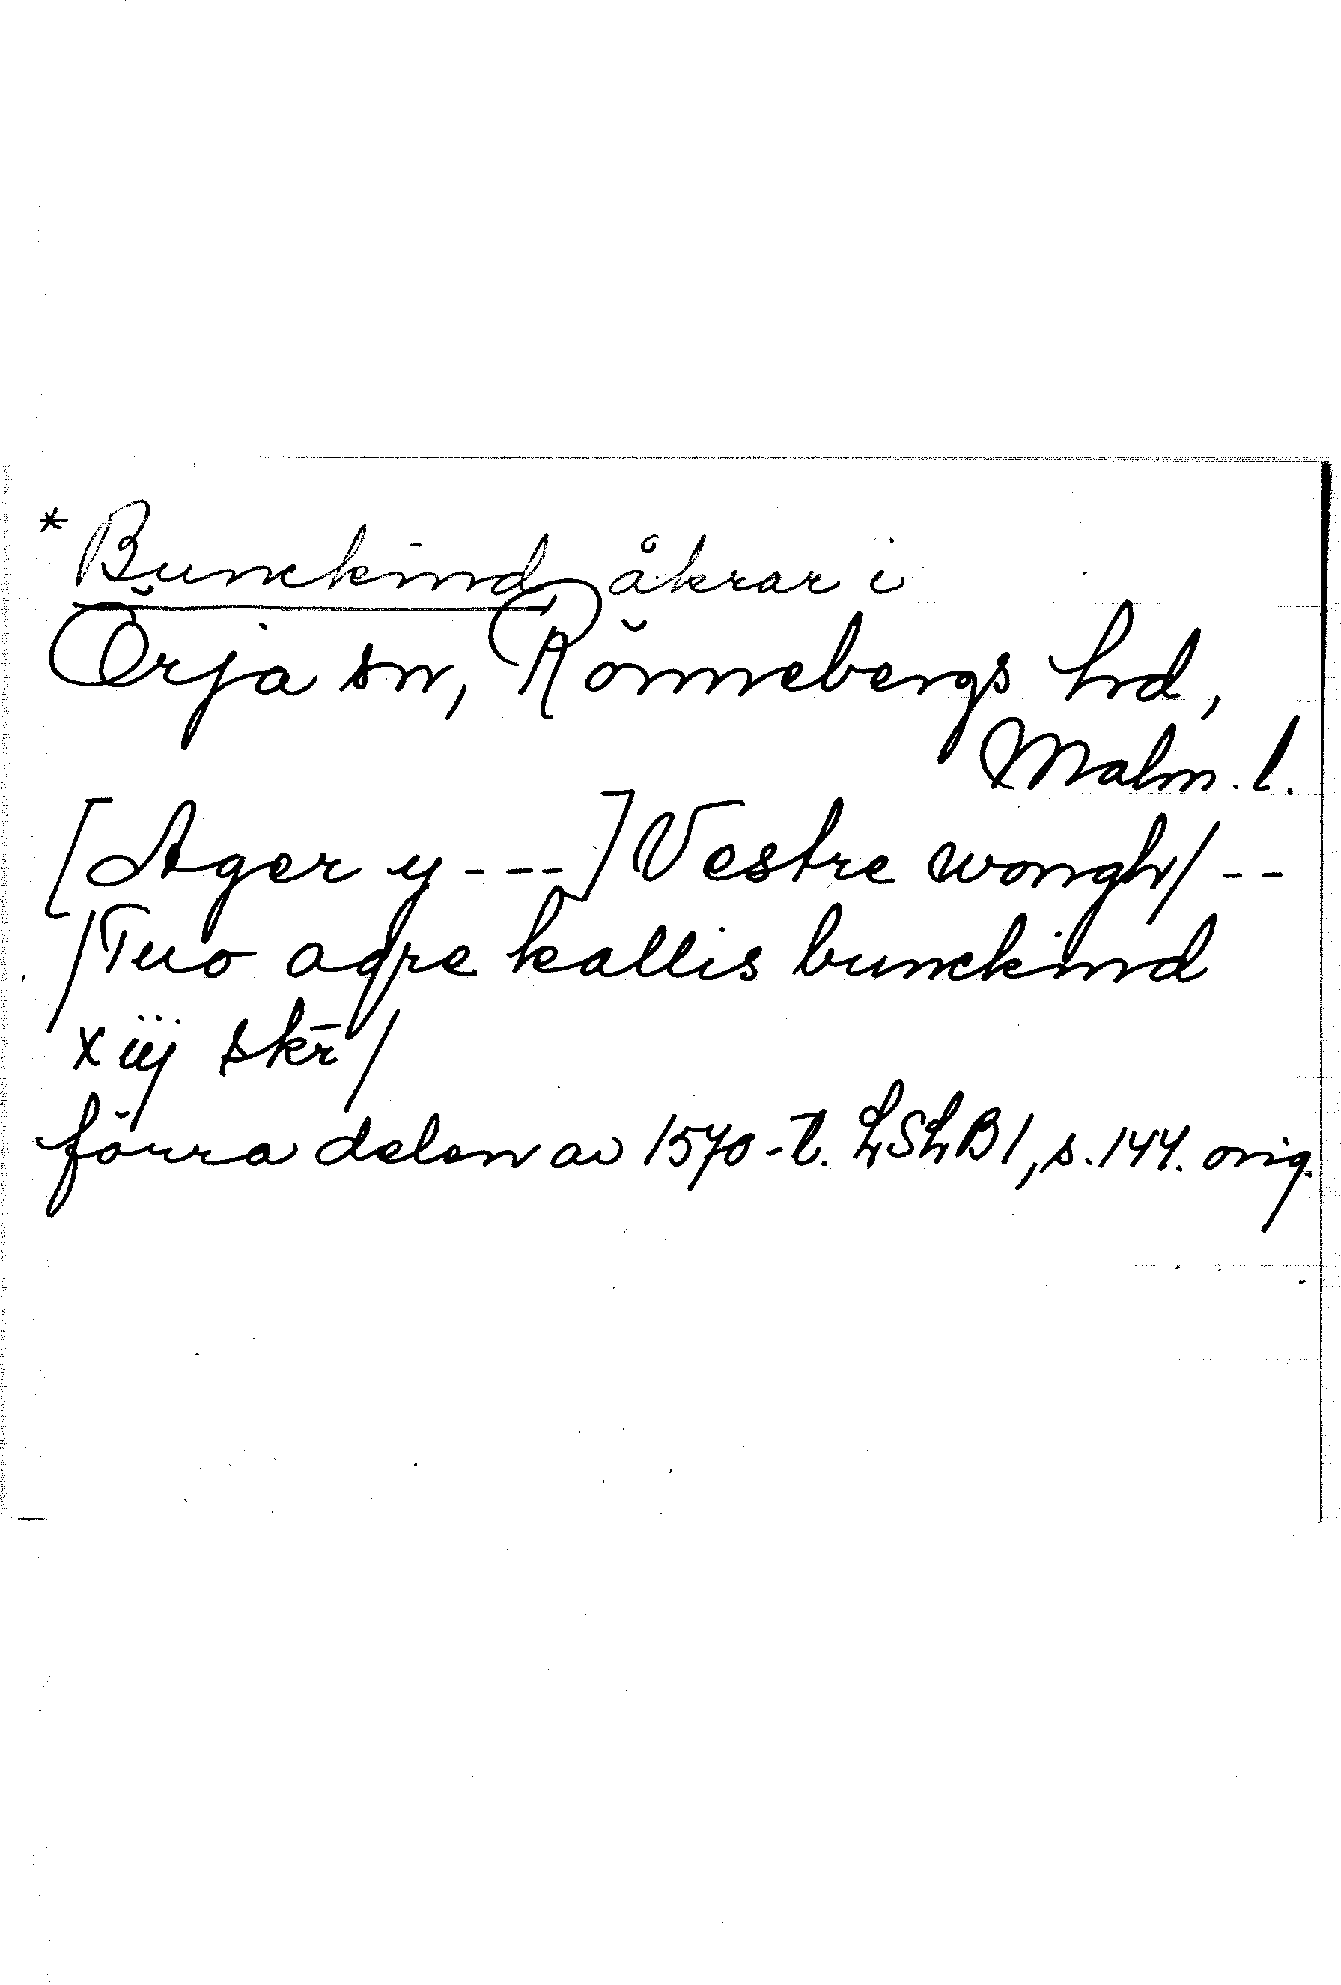 * Bunckind åkrar i
Örja sn, Rönnebergs hrd,
Malm. l.
[Ager y ---] Vestre wongh/ --
/Tuo agre kallis bunckind
xiij skr̄/
förra delen av 1570-t. LSLB1, s. 144. orig.